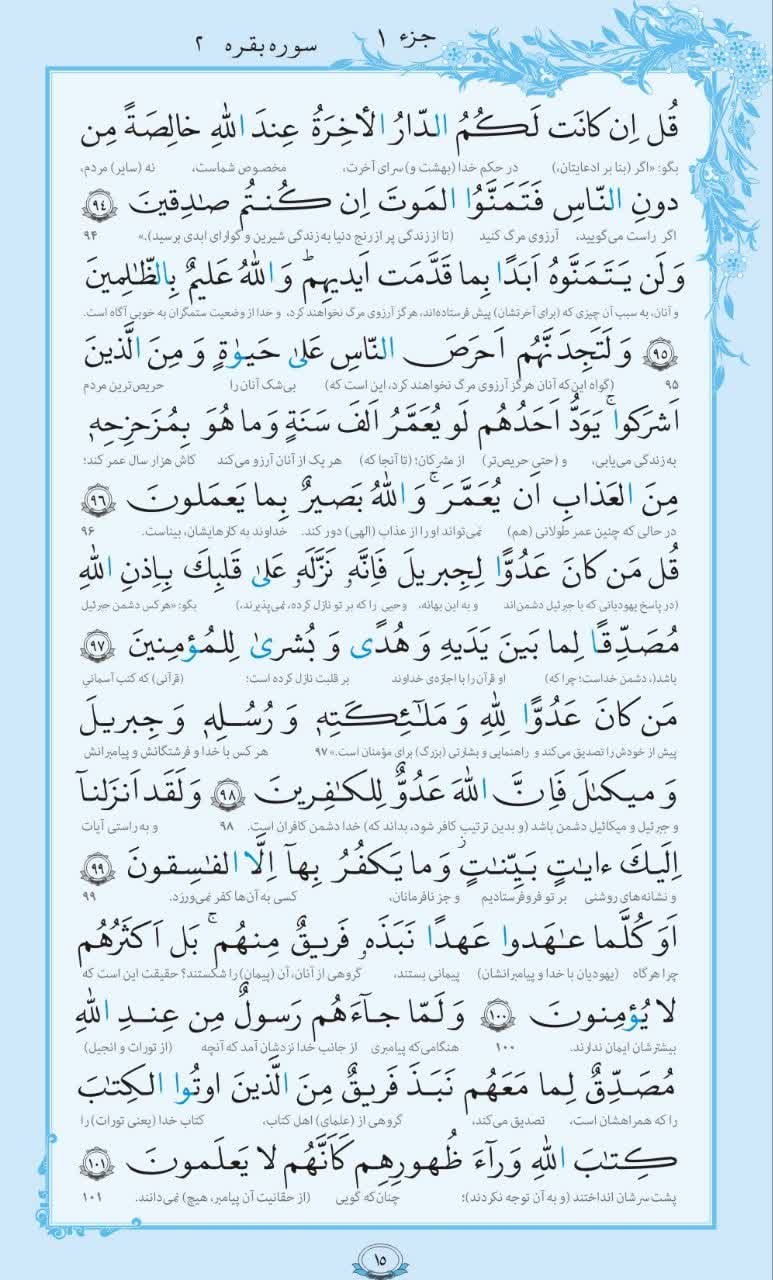 جزء ۱
سوره بقره ۲
قُل اِن كانَت لَكُمُ الدّارُ الأخِرَةُ عِندَ اللّٰهِ خالِصَةً مِن
بگو: «اگر (بنا بر ادعایتان،) در حکم خدا (بهشت و) سرای آخرت، مخصوص شماست، نه (سایر) مردم،
دونِ النّاسِ فَتَمَنَّوُا المَوتَ اِن كُنتُم صٰدِقينَ ﴿٩٤﴾
اگر راست می‌گویید، آرزوی مرگ کنید (تا از زندگی پر از رنج دنیا به زندگی شیرین و گوارای ابدی برسید).» ۹۴
وَ لَن يَتَمَنَّوهُ اَبَدًا بِما قَدَّمَت اَيديهِم ۗ وَ اللّٰهُ عَليمٌ بِالظّٰلِمينَ
و آنان، به سبب آن چیزی که (برای آخرتشان) پیش فرستاده‌اند، هرگز آرزوی مرگ نخواهند کرد، و خدا از وضعیت ستمگران به خوبی آگاه است.
﴿٩٥﴾ وَ لَتَجِدَنَّهُم اَحرَصَ النّاسِ عَلىٰ حَيوٰةٍ وَ مِنَ الَّذينَ
۹۵ (گواه این‌که آنان هرگز آرزوی مرگ نخواهند کرد، این است که) بی‌شک آنان را حریص‌ترین مردم
اَشرَكوا ۚ يَوَدُّ اَحَدُهُم لَو يُعَمَّرُ اَلفَ سَنَةٍ وَ ما هُوَ بِمُزَحزِحِهٖ
به زندگی می‌یابی، و (حتی حریص‌تر) از مشرکان؛ (تا آنجا که) هر یک از آنان آرزو می‌کند کاش هزار سال عمر کند؛
مِنَ العَذابِ اَن يُعَمَّرَ ۚ وَ اللّٰهُ بَصيرٌ بِما يَعمَلونَ ﴿٩٦﴾
در حالی که چنین عمر طولانی (هم) نمی‌تواند او را از عذاب (الهی) دور کند. خداوند به کارهایشان، بیناست. ۹۶
قُل مَن كانَ عَدُوًّا لِجِبريلَ فَاِنَّهٗ نَزَّلَهٗ عَلىٰ قَلبِكَ بِاِذنِ اللّٰهِ
(در پاسخ یهودیانی که با جبرئیل دشمن‌اند و به این بهانه، وحیی را که بر تو نازل کرده، نمی‌پذیرند،) بگو: «هر کس دشمن جبرئیل
مُصَدِّقًا لِما بَينَ يَدَيهِ وَ هُدًى وَ بُشرىٰ لِلمُؤمِنينَ ﴿٩٧﴾
باشد، دشمن خداست؛ چرا که) او قرآن را با اجازه‌ی خداوند بر قلبت نازل کرده است؛ (قرآنی) که کتب آسمانیِ
مَن كانَ عَدُوًّا لِلّٰهِ وَ مَلٰٓئِكَتِهٖ وَ رُسُلِهٖ وَ جِبريلَ
پیش از خودش را تصدیق می‌کند و راهنمایی و بشارتی (بزرگ) برای مؤمنان است.» ۹۷ هر کس با خدا و فرشتگانش و پیامبرانش
وَ ميكىٰلَ فَاِنَّ اللّٰهَ عَدُوٌّ لِلكٰفِرينَ ﴿٩٨﴾ وَ لَقَد اَنزَلنآ
و جبرئیل و میکائیل دشمن باشد (و بدین ترتیب کافر شود، بداند که) خدا دشمن کافران است. ۹۸ و به راستی آیات
اِلَيكَ ءايٰتٍ بَيِّنٰتٍ وَ ما يَكفُرُ بِهآ اِلَّا الفٰسِقونَ ﴿٩٩﴾
و نشانه‌های روشنی بر تو فرو فرستادیم و جز نافرمانان، کسی به آن‌ها کفر نمی‌ورزد. ۹۹
اَوَ كُلَّما عٰهَدوا عَهدًا نَبَذَهٗ فَريقٌ مِنهُم ۚ بَل اَكثَرُهُم
چرا هرگاه (یهودیان با خدا و پیامبرانشان) پیمانی بستند، گروهی از آنان، آن (پیمان) را شکستند؟ حقیقت این است که
لا يُؤمِنونَ ﴿١٠٠﴾ وَ لَمّا جآءَهُم رَسولٌ مِن عِندِ اللّٰهِ
بیشترشان ایمان ندارند. ۱۰۰ هنگامی‌که پیامبری از جانب خدا نزدشان آمد که آنچه (از تورات و انجیل)
مُصَدِّقٌ لِما مَعَهُم نَبَذَ فَريقٌ مِنَ الَّذينَ اوتُوا الكِتٰبَ
را که همراهشان است، تصدیق می‌کند، گروهی از (علمای) اهل کتاب، کتاب خدا (یعنی تورات) را
كِتٰبَ اللّٰهِ وَرآءَ ظُهورِهِم كَاَنَّهُم لا يَعلَمونَ ﴿١٠١﴾
پشت سرشان انداختند (و به آن توجه نکردند)؛ چنان‌که گویی (از حقانیت آن پیامبر، هیچ) نمی‌دانند. ۱۰۱
۱۵